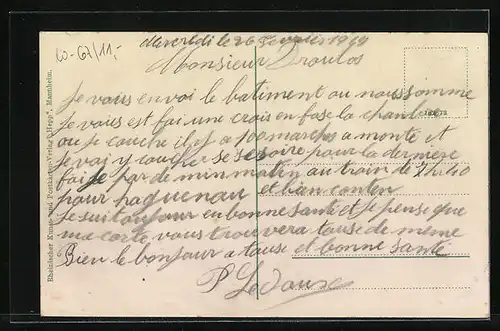 Mercredi le 26 Février 1919
Monsieur Droulos
Je vous envoi le batiment ou nous somme
Je vous est fai une crois en fase la chambre
ou je couche il y a 100 marches a monté et
Je vai y coucher se soire pour la derniere
fois Je par demin matin au train de 7h40
pour haguenau et bien conten
Je suis toujour en bonne santé et je pense que
ma carte vous trouvera tause de même
Bien le bonjour a tause et bonne santé
P Ledoux
Rheinischer Kunst- und Postkarten-Verlag
Mannheim.